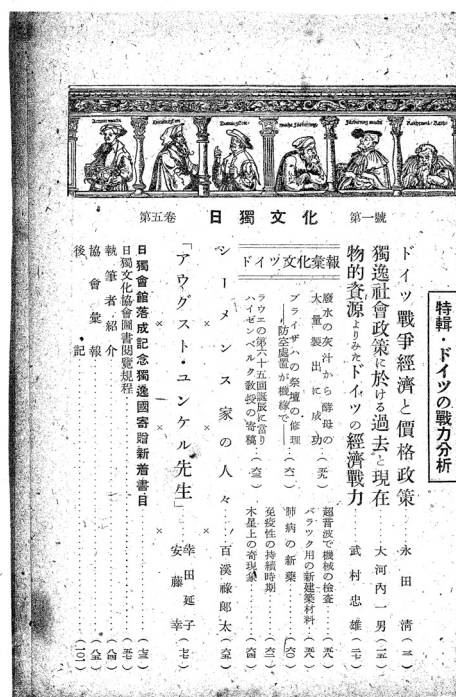 第五卷 日獨文化 第一號
特輯・ドイツの戰力分析
ドイツ戰爭經濟と價格政策 永田清
獨逸社會政策に於ける過去と現在 大河內一男
物的資源よりみたドイツの經濟戰力 武村忠雄
ドイツ文化彙報
廢水の灰汁から酵母の
大量製出に成功
ブライザハの祭壇の修理
——防空處置が機緣で——
ラウエの第六十五回誕辰に當り
ハイゼンベルク敎授の寄稿
超音波で機械の檢査
バラック用の新建築材料
肺病の新藥
免疫性の持續時期
木星上の奇現象
シーメンス家の人々 百溪祿郞太
×××
「アウグスト・ユンケル先生」 幸田延子
安藤幸
×××
日獨會館落成記念獨逸國寄贈新着書目
日獨文化協會圖書閱覽規程
執筆者紹介
協會彙報
後記